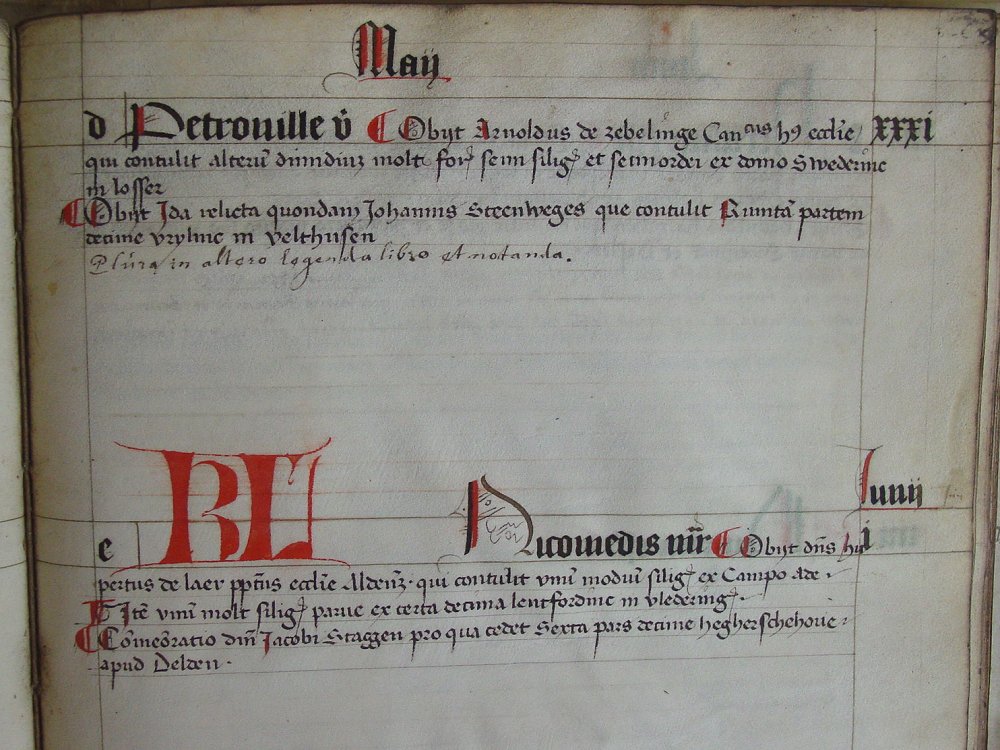 Maij
d Petronille v̄ Obijt Arnoldus de zebelinge Canᶜᵘˢ hꝰ ecclie xxxi
qui contulit alterū dimidiū molt for semi silig et semi ordei ex domo Swederinc
in losser
Obijt Ida relicta quondam Johannis Steenweges que contulit Quintā partem
decime vrylinc in velthusen
Plura in altero legenda libro et notanda.
KL Junij
e Nicomedis mr̄ Obijt dn̄s hu i
pertus de laer ecclie Aldenz. qui contulit vnū modiū silig ex Campo ade
Itē vnū molt silig parue ex certa decima lentfordinc in vledering
Cōmeōratio dn̄i Jacobi Staggen pro qua cedet Sexta pars decime hegherschehoue
apud Delden.